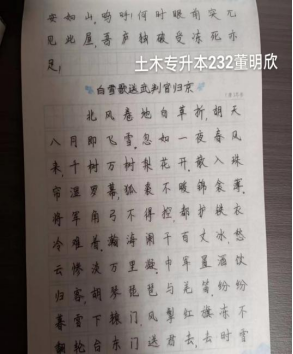 安如山,呜呼!何时眼前突兀
见此屋,吾庐独破受冻死亦
足!
土木专升本232董明欣
白雪歌送武判官归京
北风卷地白草折,胡天
八月即飞雪,忽如一夜春风
来,千树万树梨花开,散入珠
帘湿罗幕,狐裘不暖锦衾薄,
将军角弓不得控,都护铁衣
冷难着,瀚海阑干百丈冰,愁
云惨淡万里凝,中军置酒饮
归客,胡琴琵琶与羌笛,纷纷
暮雪下辕门,风掣红旗冻不
翻,轮台东门送君去,去时雪